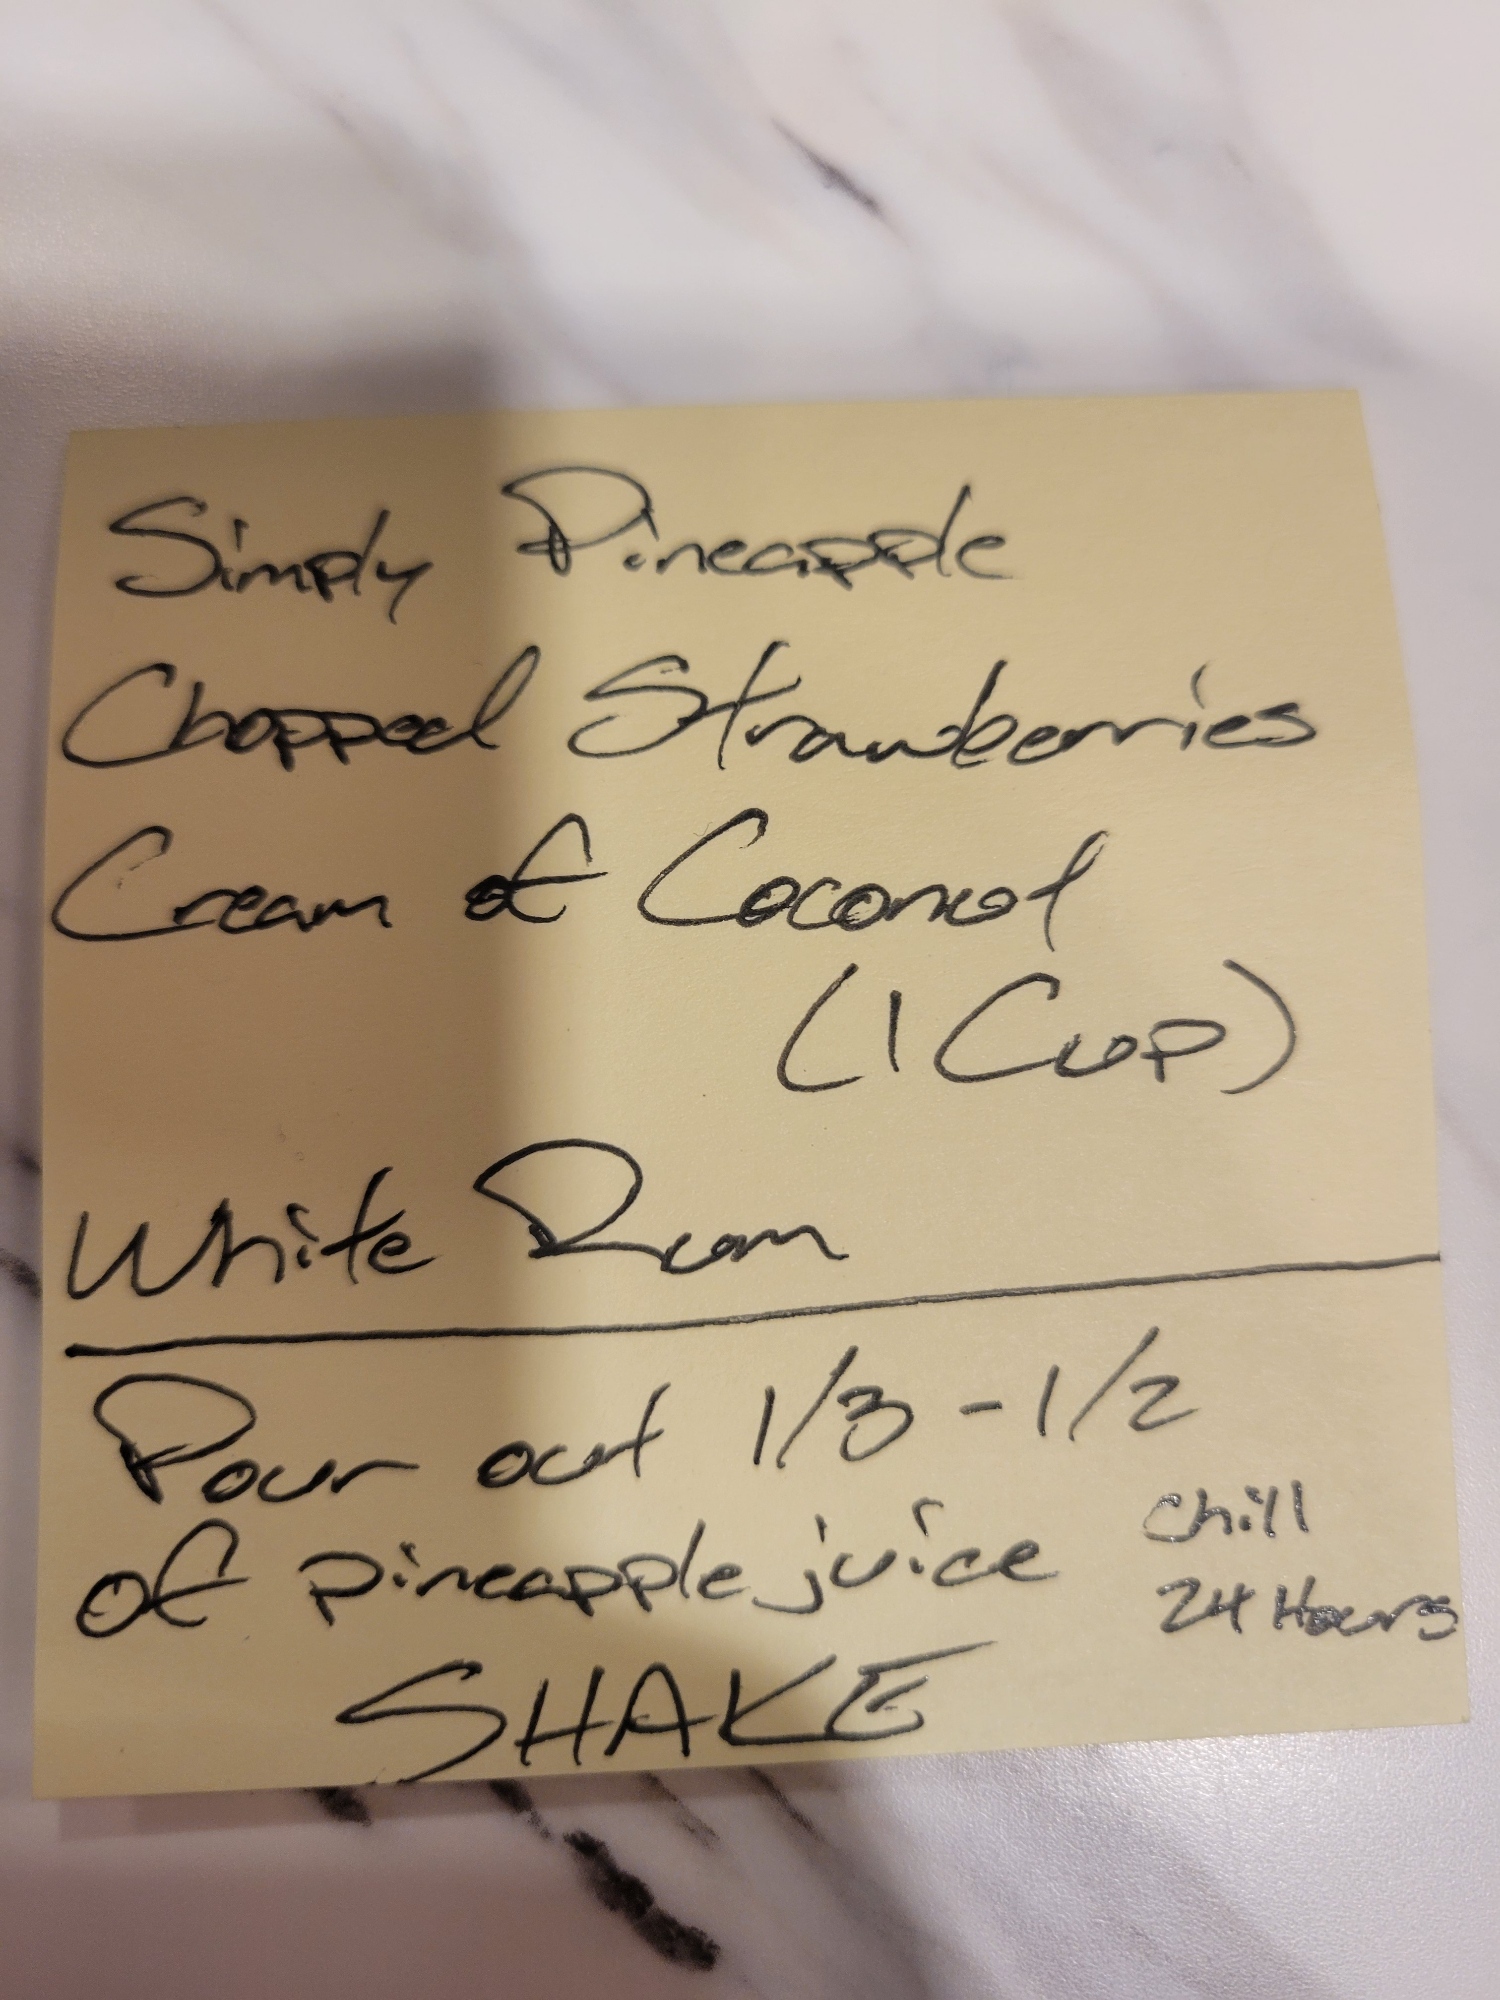 Simply Pineapple
Chopped Strawberries
Cream of Coconut
(1 Cup)
White Rum
Pour out 1/3 - 1/2
of pineapple juice
chill
24 Hours
SHAKE